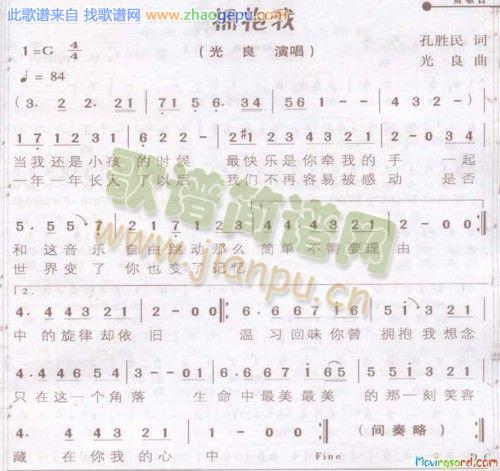 此歌谱来自 找歌谱网 www.zhaogepu.com
拥抱我
1=G 4/4
(光 良 演唱)
孔胜民 词
♩=84
光 良 曲
(3. 2 2. 21 | 71 5. 6. 34 | 561 1 - - | 4 3 2 - )
1 7 1 2 3 1 | 6 2 2 - | 2 #1 2 3 4 3 2 1 | 2 - 0 3 4
当我 还 是 小 孩 的 时 候 最 快 乐 是 你 牵 我 的 手 一 起
一 年 一 年 长 大 了 以 后 我 们 不 再 容 易 被 感 动 是 否
和 这 音 乐 自 由 跳 动 那 么 简 单 不 需 要 理 由
世 界 变 了 你 也 变 了 记 忆
2.
4. 4 4 3 2 1 | 2 - 0 0 :‖ 6. 6 6 7 1 6 | 5 1 3 2 1
中 的 旋 律 却 依 旧 温 习 回 味 你 曾 拥 抱 我 想 念
4. 4 4 6 5 4 | 3 - - 0 1 | 6. 6 6 7 1 6 5 | 5. 1 3 2 1
只 在 这 一 个 角 落 生 命 中 最 美 最 美 的 那 一 刻 笑 容
4. 4 4 3 2 1 | 1 - 0 0 :‖ (间奏略)
藏 在 你 我 的 心 中 Fine D.C.
歌谱简谱网
www.jianpu.cn